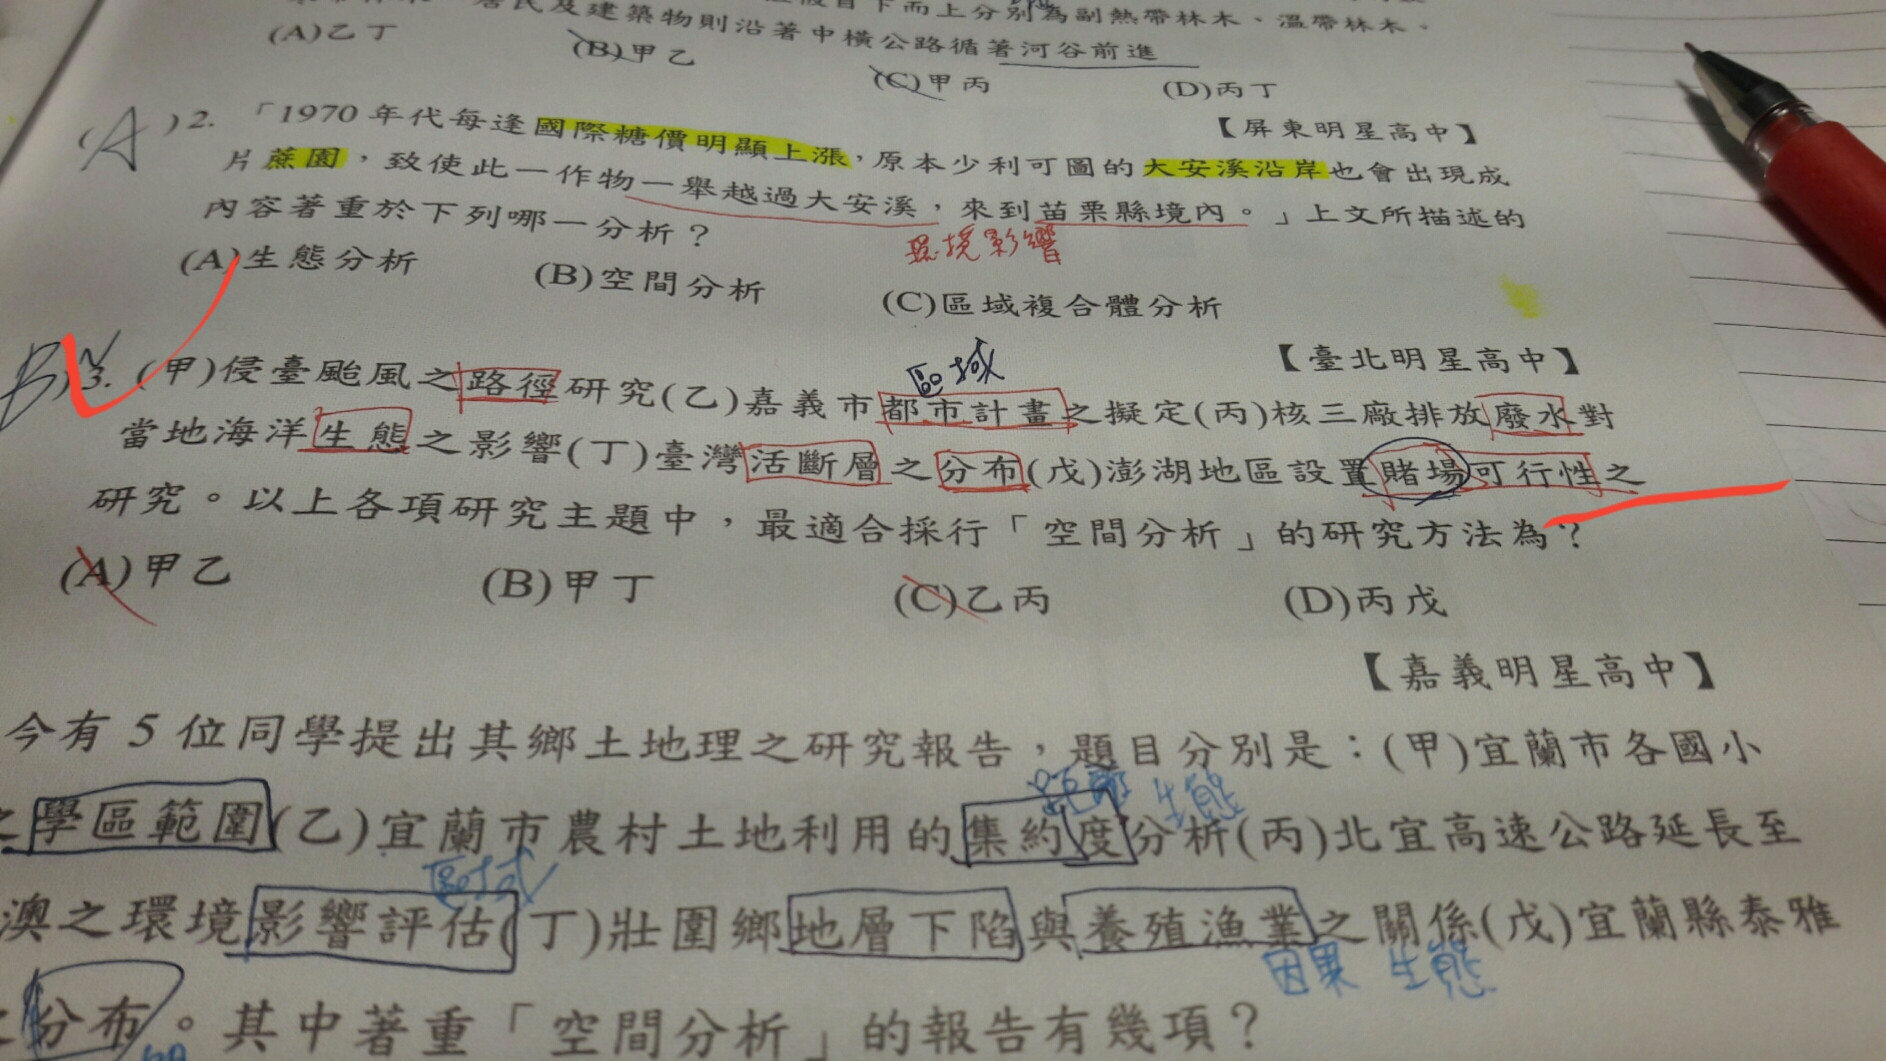 居民及建築物則沿著中橫公路循著河谷前進
下而上分別為副熱帶林木、溫帶林木、
(A)乙丁 (B)甲乙 (C)甲丙 (D)丙丁
【屏東明星高中】
(A)2. 「1970年代每逢國際糖價明顯上漲，原本少利可圖的大安溪沿岸也會出現成
片蔗園，致使此一作物一舉越過大安溪，來到苗栗縣境內。」上文所描述的
內容著重於下列哪一分析？
环境影響
(A)生態分析 (B)空間分析 (C)區域複合體分析
【臺北明星高中】
區域
B)3. (甲)侵臺颱風之路徑研究(乙)嘉義市都市計畫之擬定(丙)核三廠排放廢水對
當地海洋生態之影響(丁)臺灣活斷層之分布(戊)澎湖地區設置賭場可行性之
研究。以上各項研究主題中，最適合採行「空間分析」的研究方法為？
(A)甲乙 (B)甲丁 (C)乙丙 (D)丙戊
【嘉義明星高中】
今有5位同學提出其鄉土地理之研究報告，題目分別是：(甲)宜蘭市各國小
距離 生態
之學區範圍(乙)宜蘭市農村土地利用的集約度分析(丙)北宜高速公路延長至
區域
澳之環境影響評估(丁)壯圍鄉地層下陷與養殖漁業之關係(戊)宜蘭縣泰雅
因果 生態
之分布。其中著重「空間分析」的報告有幾項？